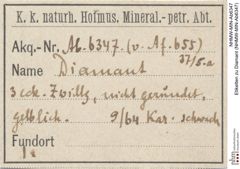 K. k. naturh. Hofmus. Mineral.-petr. Abt.
Akq.-Nr. Ab 6347. (v. Af. 655)
37/5.a
Name Diamant
3 eck. Zwillg, nicht gerundet,
gelblich. 9/64 Kar. schwach
Fundort
NHMW-MIN-Ab6347
Etiketten zu Diamant (NHMW-MIN-Ab6347)